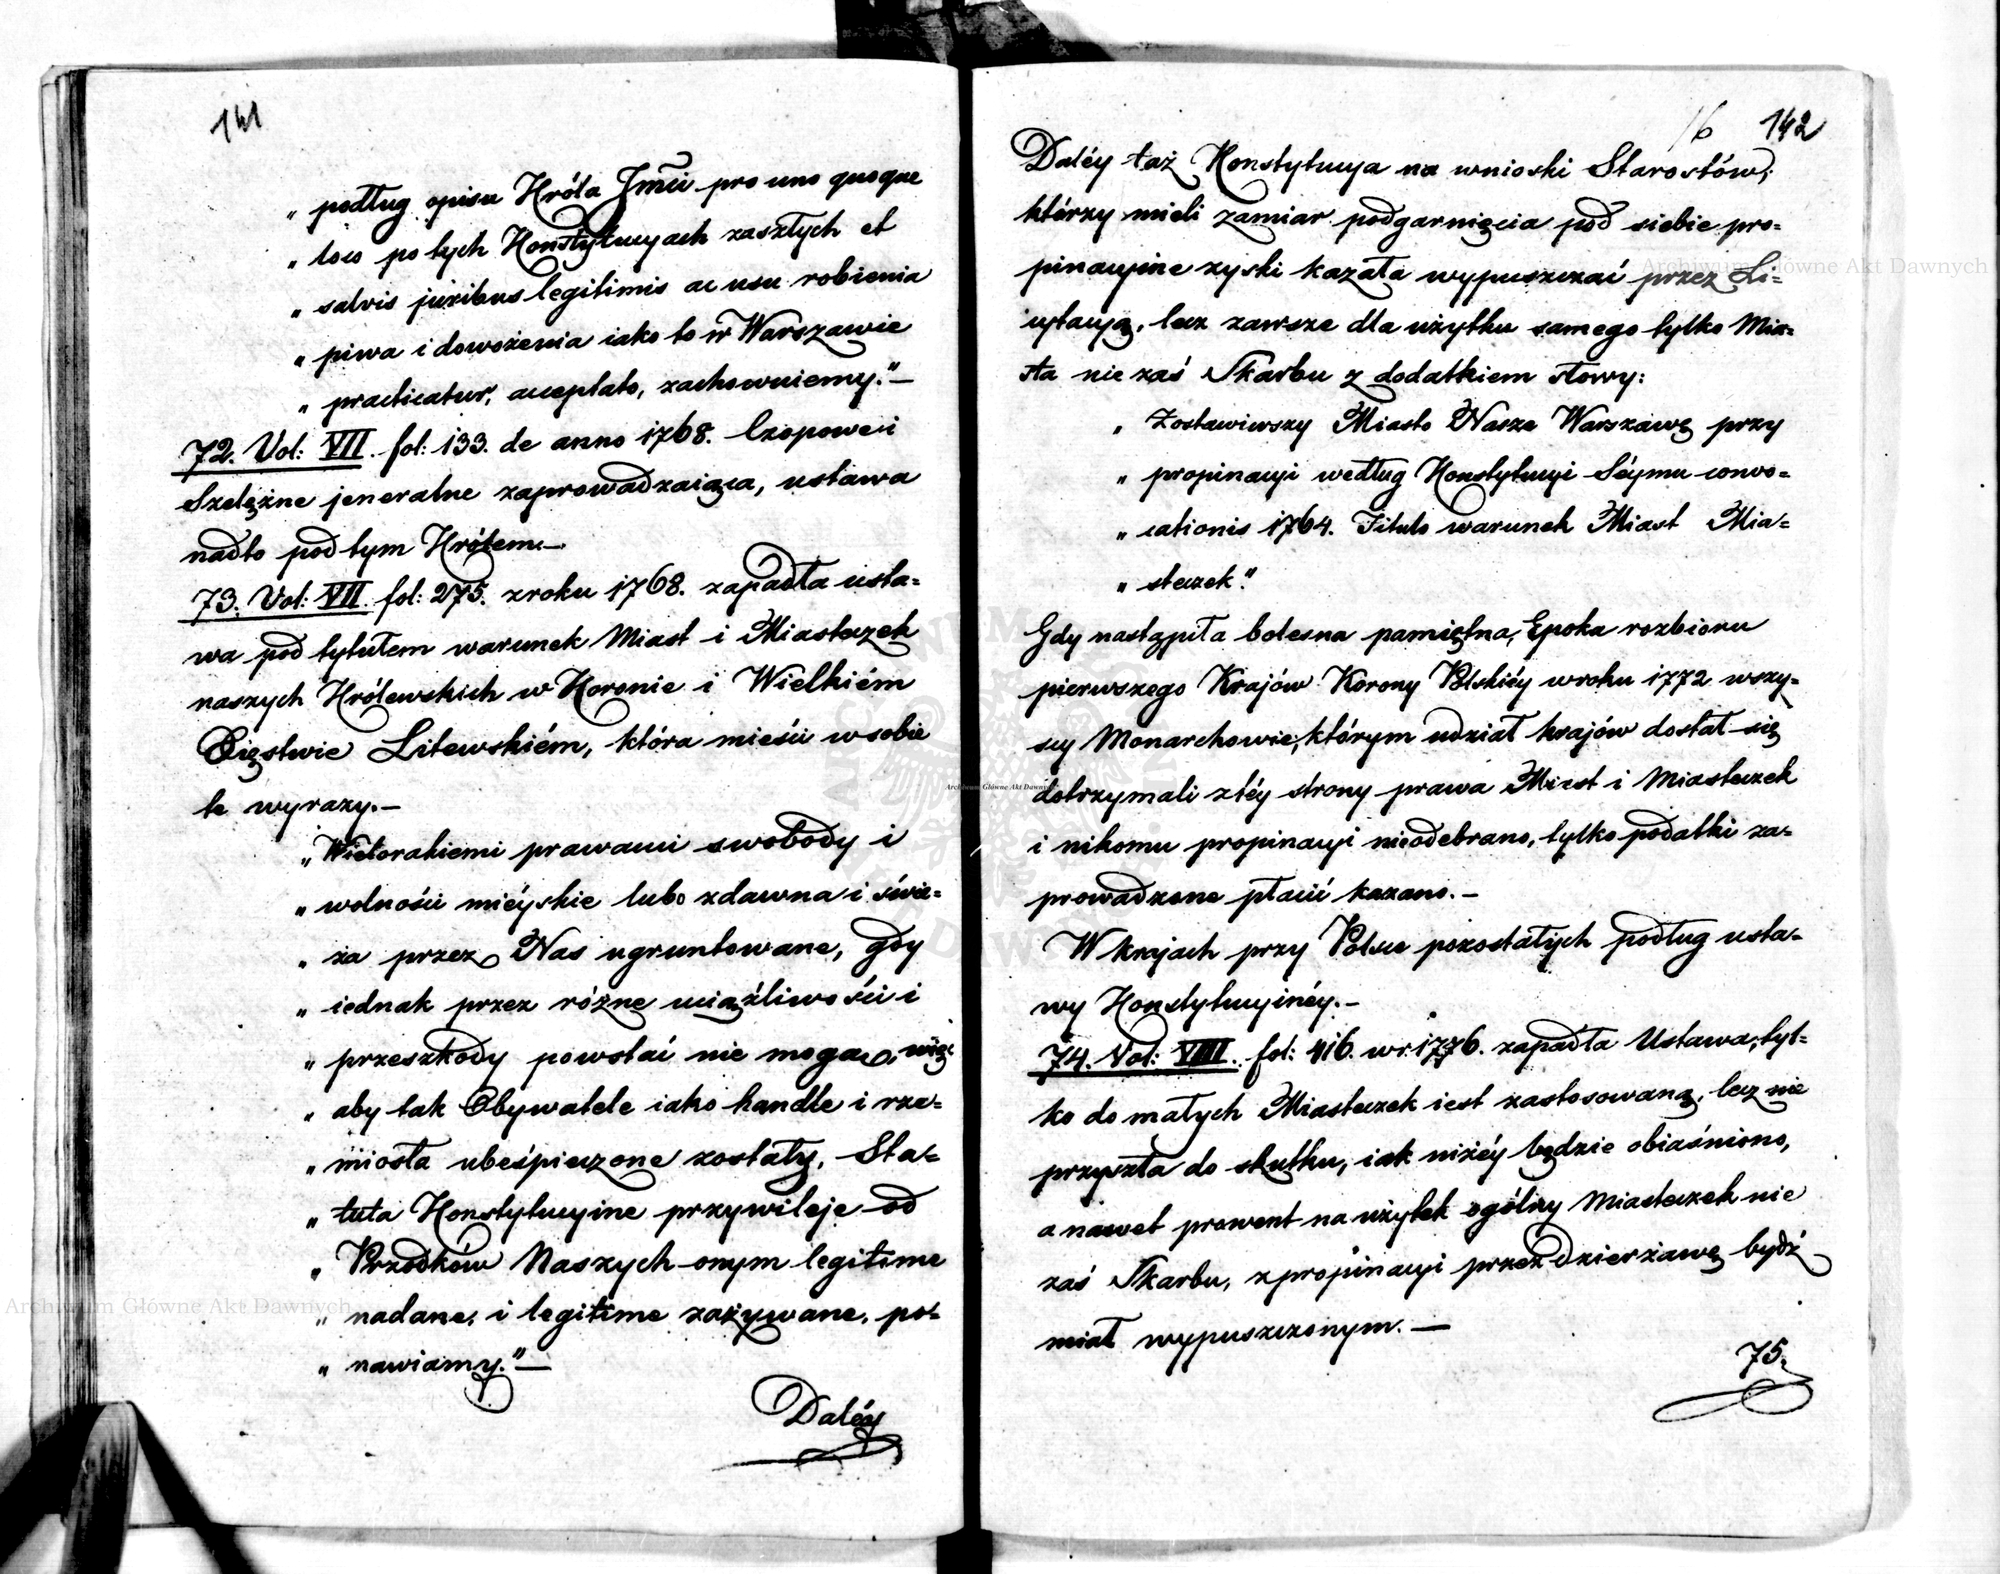 141
„ podług opisu Króla Jmći pro uno quoque
„ loco po tych Konstytucyach zaszłych et
„ salvis juribus legitimis ac usu robienia
„ piwa i dowożenia iako to w Warszawie
„ practicatur, acceptato, zachowuiemy." —
72. Vol: VII. fol: 133. de anno 1768. Czopowe i
Szelężne jeneralne zaprowadzaiąca, ustawa
nadto pod tym Królem. —
73. Vol: VII. fol: 275. z roku 1768. zapadła usta=
wa pod tytułem warunek Miast i Miasteczek
naszych Królewskich w Koronie i Wielkiém
Xięstwie Litewskiém, która mieści w sobie
te wyrazy. —
„ Wielorakiemi prawami swobody i
„ wolności miéyskie lubo zdawna i świe=
„ żo przez Nas ugruntowane, gdy
„ iednak przez różne uciążliwości i
„ przeszkody powstać nie mogą, więc
„ aby tak Obywatele iako handle i rze=
„ miosła ubeśpieczone zostały, Sta=
„ tuta Konstytucyine przywileje od
„ Przodków Naszych onym legitime
„ nadane, i legitime zażywane, po=
„ nawiamy." —
Daléy
16 142
Daléy taż Konstytucya na wnioski Starostów,
którzy mieli zamiar podgarnięcia pod siebie pro=
pinacyine zyski kazała wypuszczać przez Li=
cytacyą, lecz zawsze dla użytku samego tylko Mia=
sta nie zaś Skarbu z dodatkiem słowy:
„ Zostawiwszy Miasto Nasze Warszawę przy
„ propinacyi według Konstytucyi Séymu convo=
„ cationis 1764. Titulo warunek Miast Mia=
„ steczek."
Gdy nastąpiła bolesna pamiętna, Epoka rozbioru
pierwszego Krajów Korony Polskiéy w roku 1772 wszy=
scy Monarchowie, którym udział krajów dostał się
dotrzymali z téy strony prawa Miast i Miasteczek
i nikomu propinacyi nieodebrano, tylko podatki za=
prowadzone płacić kazano. —
W krajach przy Polsce pozostałych podług usta=
wy Konstytucyinéy. —
74. Vol: VIII. fol: 416. w r: 1776. zapadła Ustawa, tyl=
ko do małych Miasteczek iest zastosowaną, lecz nie
przyszła do skutku, iak niżéy będzie obiaśniono,
a nawet prowent na użytek ogólny Miasteczek nie
zaś Skarbu, z propinacyi przez dzierżawę bydź
miał wypuszczonym. —
75.
Archiwum Główne Akt Dawnych
Archiwum Główne Akt Dawnych
Archiwum Główne Akt Dawnych